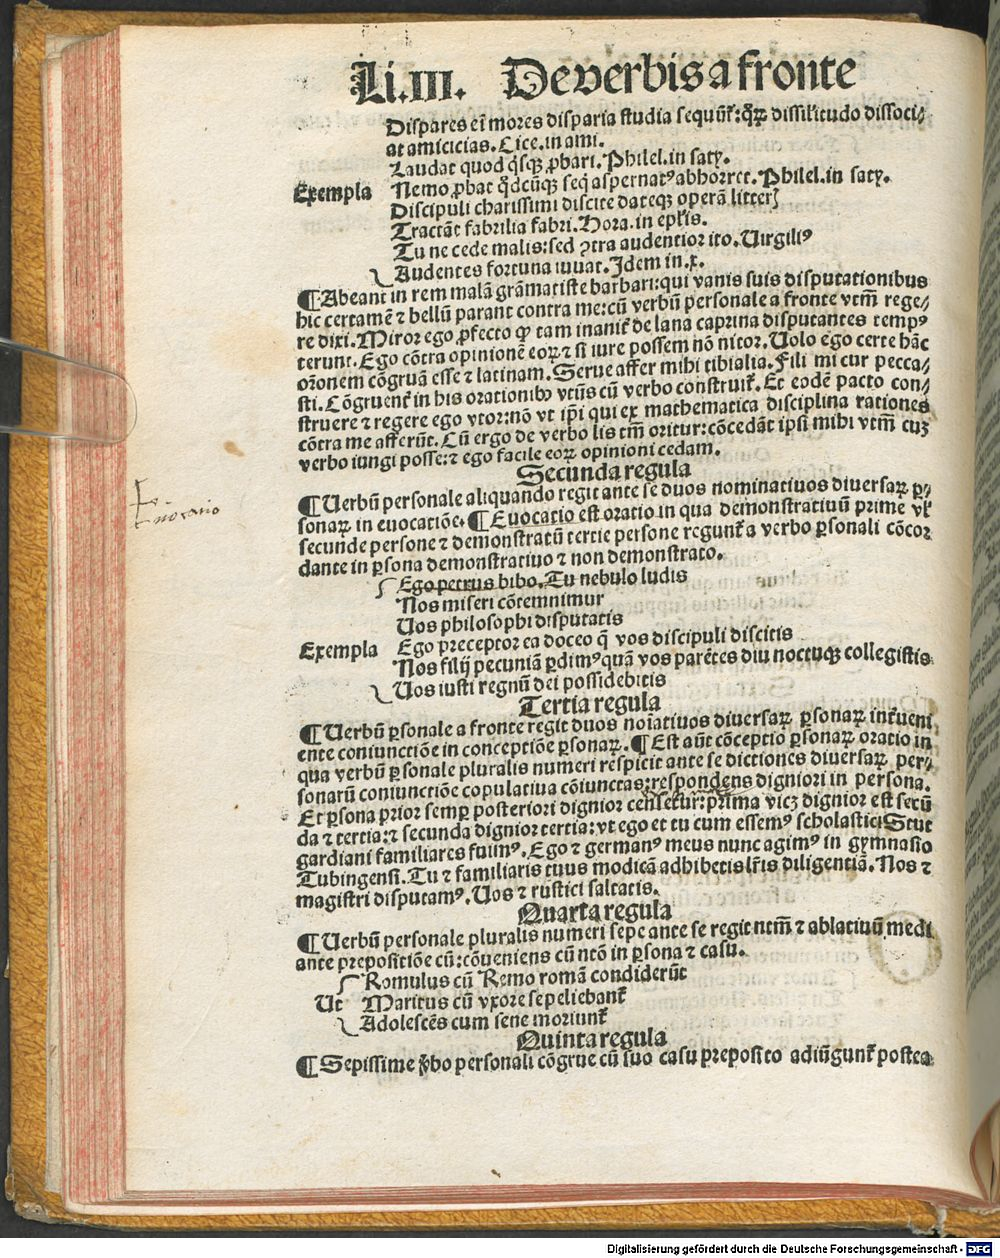 Li.III. De verbis a fronte
Dispares eī mores disparia studia sequūt᷑: qꝛꝝ dissil'itudo dissoci⸗
at amicicias. Cice. in ami.
Laudat quod q̇sqꝫ ꝓbari. Philel. in satẏ.
Exempla Nemo ꝓbat qḋcūqꝫ seq̇ aspernatꝰ abhorret. Philel. in satẏ.
Discipuli charissimi discite dateqꝫ operā litterꝭ
Tractāt fabrilia fabri. Hora. in epl̓is.
Tu ne cede malis: sed ꝯtra audentior ito. Uirgiliꝰ
Audentes fortuna iuuat. Idem in .x.
¶ Abeant in rem malā grāmatiste barbari: qui vanis suis disputationibus
hic certamē ⁊ bellū parant contra me: cū verbū personale a fronte vtm̄ rege⸗
re dixi. Miror ego ꝓfecto ꝙ tam inanit᷑ de lana caprina disputantes tempꝰ
terunt. Ego cōtra opinionē eoꝝ ⁊ si iure possem nō nitor. Uolo ego certe hāc
or̄onem cōgruā esse ⁊ latinam. Serue affer mihi tibialia. Fili mi cur pecca⸗
sti. Cōgruent᷑ in his orationibꝰ vtūs cū verbo construit᷑. Et eodē pacto con⸗
struere ⁊ regere ego vtor: nō vt ip̄i qui ex mathematica disciplina rationes
cōtra me afferūt. Cū ergo de verbo lis tm̄ oritur: cōcedāt ipsi mihi vtm̄ cuꝫ
verbo iungi posse: ⁊ ego facile eoꝝ opinioni cedam.
Secunda regula
¶ Uerbū personale aliquando regit ante se duos nominatiuos diuersaꝝ ꝑ⸗
sonaꝝ in euocatiōe. ¶ Euocatio est oratio in qua demonstratiuū prime vl̓
Euocatio
secunde persone ⁊ demonstratū tertie persone regunt᷑ a verbo ꝑsonali cōcor
dante in ꝑsona demonstratiuo ⁊ non demonstrato.
Ego petrus bibo. Tu nebulo ludis
Nos miseri cōtemnimur
Uos philosophi disputatis
Exempla Ego preceptor ea doceo q̄ vos discipuli discitis
Nos filij pecuniā ꝑdimꝰ quā vos parētes diu noctuqꝫ collegistis
Uos iusti regnū dei possidebitis
Tertia regula
¶ Uerbū ꝑsonale a fronte regit duos noīatiuos diuersaꝝ ꝑsonaꝝ int᷑ueni
ente coniunctiōe in conceptiōe ꝑsonaꝝ. ¶ Est aūt cōceptio ꝑsonaꝝ oratio in
qua verbū ꝑsonale pluralis numeri respicit ante se dictiones diuersaꝝ per⸗
sonarū coniunctiōe copulatiua cōiunctas: respondens digniori in persona.
Et ꝑsona prior semꝑ posteriori dignior censetur: prima vicꝫ dignior est secū
da ⁊ tertia: ⁊ secunda dignior tertia: vt ego et tu cum essemꝰ scholastici Stut
gardiani familiares fuimꝰ. Ego ⁊ germanꝰ meus nunc agimꝰ in gymnasio
Tubingensi. Tu ⁊ familiaris tuus modicā adhibetis lr̄is diligentiā. Nos ⁊
magistri disputamꝰ. Uos ⁊ rustici saltatis.
Quarta regula
¶ Uerbū personale pluralis numeri sepe ante se regit ntm̄ ⁊ ablatiuū medi
ante prepositiōe cū: cōueniens cū ntō in ꝑsona ⁊ casu.
Romulus cū Remo romā condiderūt
Ut Maritus cū vxore sepeliebant᷑
Adolescēs cum sene moriunt᷑
Quinta regula
¶ Sepissime ꝟbo personali cōgrue cū suo casu preposito adiūgunt᷑ postea
Digitalisierung gefördert durch die Deutsche Forschungsgemeinschaft - DFG